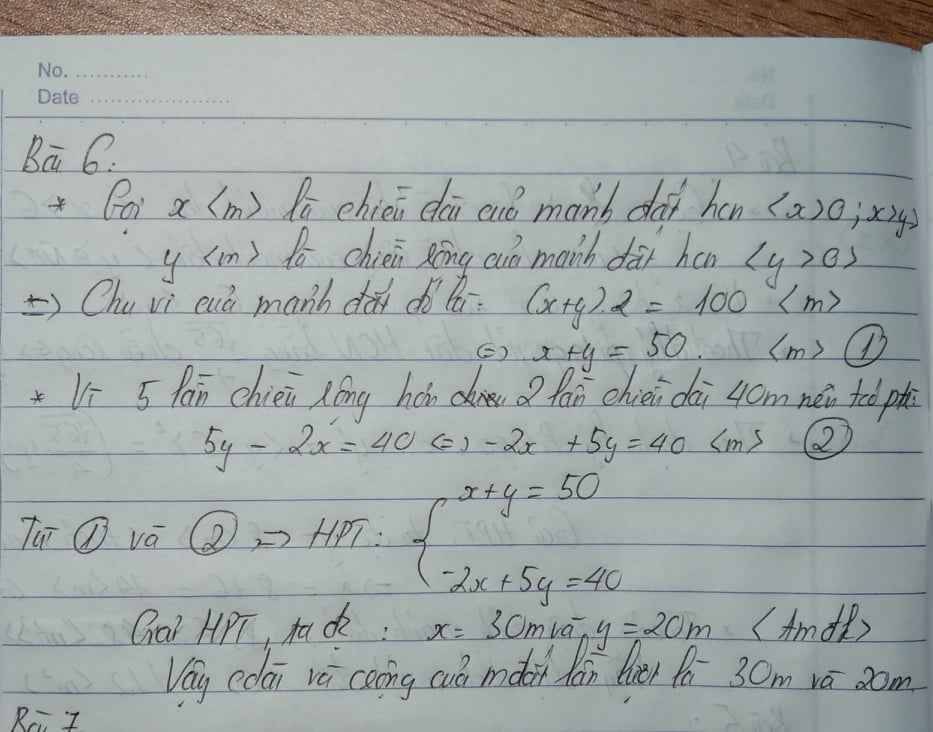 No. ...........
Date .....................
Bài 6:
* Gọi x <m> là chiều dài của mảnh đất hcn <x>0; x>y>
y <m> là chiều rộng của mảnh đất hcn <y>0>
=> Chu vi của mảnh đất đó là: (x+y).2 = 100 <m>
<=> x+y = 50. <m> ①
* Vì 5 lần chiều rộng hơn 2 lần chiều dài 40m nên ta có pt:
5y - 2x = 40 <=> -2x + 5y = 40 <m> ②
x+y = 50
Từ ① và ② => HPT: {
-2x + 5y = 40
Giải HPT, ta đc : x = 30m và y = 20m <tmđk>
Vậy cdài và crộng của mđất lần lượt là 30m và 20m.
Bài 7